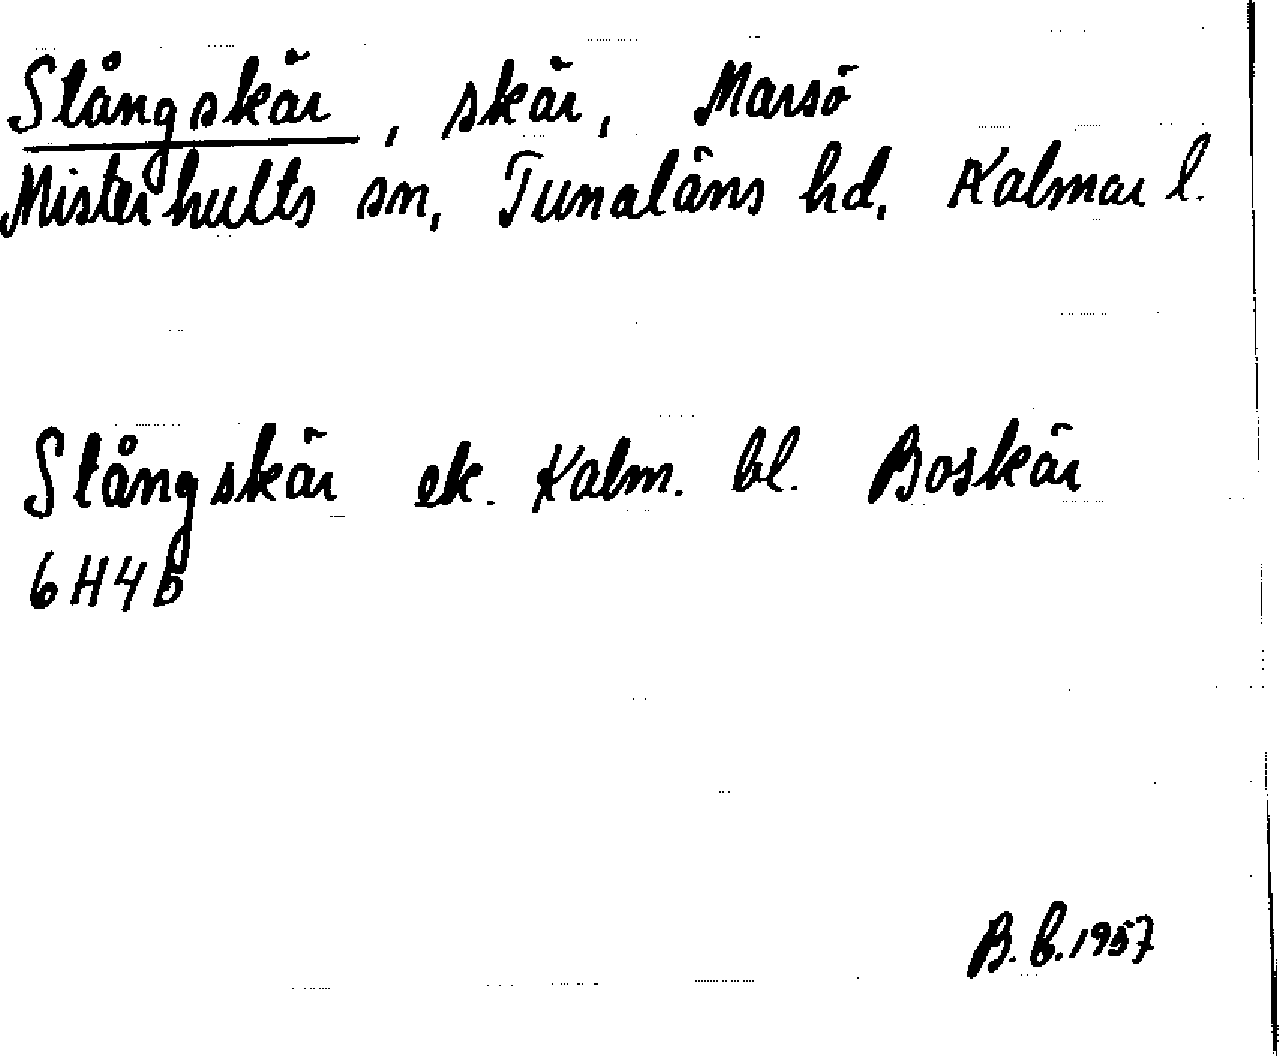 Slångskär, skär, Marsö
Misterhults sn, Tunaläns hd, Kalmar l.
Slångskär ek. Kalm. bl. Boskär
6H4b
B.G. 1957